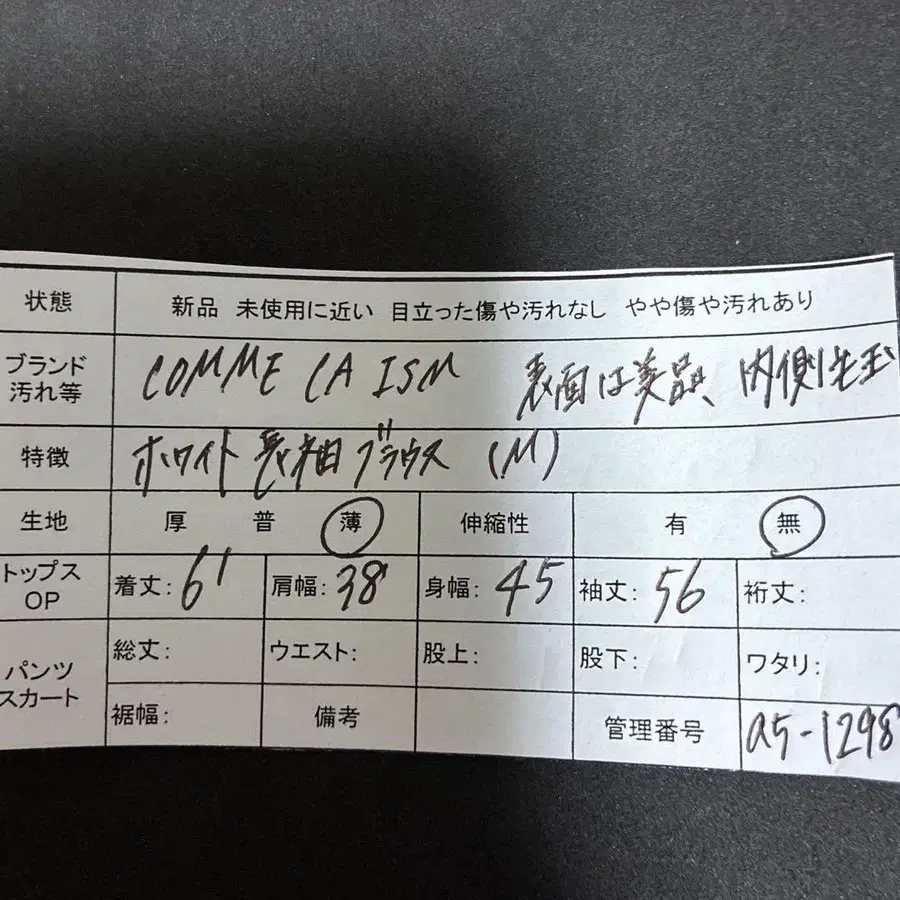 状態 新品 未使用に近い 目立った傷や汚れなし やや傷や汚れあり
ブランド 汚れ等 COMME CA ISM 表面は美品、内側
特徴 ホワイト 長袖 ブラウス (M)
生地 厚 普 薄 伸縮性 有 無
トップス OP 着丈: 61 肩幅: 38 身幅: 45 袖丈: 56 裄丈:
パンツ スカート 総丈: ウエスト: 股上: 股下: ワタリ:
裾幅: 備考 管理番号 a5-1298